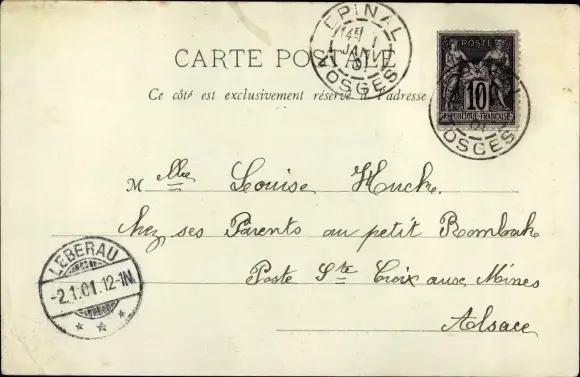 EPINAL
14E 1
JANV
01
VOSGES
CARTE POSTALE
Ce côté est exclusivement réservé à l'adresse
POSTE
10
REPUBLIQUE FRANÇAISE
VOSGES
Melle Louise Huck
chez ses Parents au petit Rombach
Poste Ste Croix aux Mines
Alsace
LEBERAU
-2.1.01.12-1N.